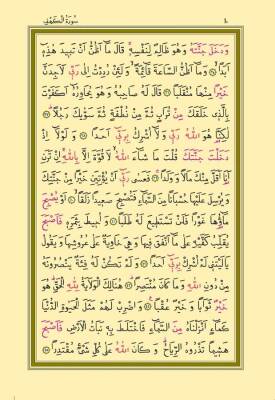 سُورَةُ الْكَهْفِ
وَدَخَلَ جَنَّتَهُ وَهُوَ ظَالِمٌ لِنَفْسِهِ ۚ قَالَ مَٓا اَظُنُّ اَنْ تَبِيدَ هٰذِهِٓ
اَبَدًا ۝ وَمَٓا اَظُنُّ السَّاعَةَ قَٓائِمَةً ۙ وَلَئِنْ رُدِدْتُ اِلٰى رَبِّي لَاَجِدَنَّ
خَيْرًا مِنْهَا مُنْقَلَبًا ۝ قَالَ لَهُ صَاحِبُهُ وَهُوَ يُحَاوِرُهُٓ اَكَفَرْتَ
بِالَّذِي خَلَقَكَ مِنْ تُرَابٍ ثُمَّ مِنْ نُطْفَةٍ ثُمَّ سَوّٰيكَ رَجُلًا ۝
لٰكِنَّا۬ هُوَ اللّٰهُ رَبِّي وَلَٓا اُشْرِكُ بِرَبِّٓي اَحَدًا ۝ وَلَوْلَٓا اِذْ
دَخَلْتَ جَنَّتَكَ قُلْتَ مَا شَٓاءَ اللّٰهُ ۙ لَا قُوَّةَ اِلَّا بِاللّٰهِ ۚ اِنْ تَرَنِ
اَنَا۬ اَقَلَّ مِنْكَ مَالًا وَوَلَدًا ۝ فَعَسٰى رَبِّٓي اَنْ يُؤْتِيَنِ خَيْرًا مِنْ جَنَّتِكَ
وَيُرْسِلَ عَلَيْهَا حُسْبَانًا مِنَ السَّمَٓاءِ فَتُصْبِحَ صَعِيدًا زَلَقًا ۝ اَوْ يُصْبِحَ
مَٓاؤُهَا غَوْرًا فَلَنْ تَسْتَطِيعَ لَهُ طَلَبًا ۝ وَاُحِيطَ بِثَمَرِهِ فَاَصْبَحَ
يُقَلِّبُ كَفَّيْهِ عَلٰى مَٓا اَنْفَقَ فِيهَا وَهِيَ خَاوِيَةٌ عَلٰى عُرُوشِهَا وَيَقُولُ
يَا لَيْتَنِي لَمْ اُشْرِكْ بِرَبِّٓي اَحَدًا ۝ وَلَمْ تَكُنْ لَهُ فِئَةٌ يَنْصُرُونَهُ
مِنْ دُونِ اللّٰهِ وَمَا كَانَ مُنْتَصِرًا ۝ هُنَالِكَ الْوَلَايَةُ لِلّٰهِ الْحَقِّ ۜ هُوَ
خَيْرٌ ثَوَابًا وَخَيْرٌ عُقْبًا ۝ وَاضْرِبْ لَهُمْ مَثَلَ الْحَيٰوةِ الدُّنْيَا
كَمَٓاءٍ اَنْزَلْنَاهُ مِنَ السَّمَٓاءِ فَاخْتَلَطَ بِهِ نَبَاتُ الْاَرْضِ فَاَصْبَحَ
هَشِيمًا تَذْرُوهُ الرِّيَاحُ ۜ وَكَانَ اللّٰهُ عَلٰى كُلِّ شَيْءٍ مُقْتَدِرًا ۝